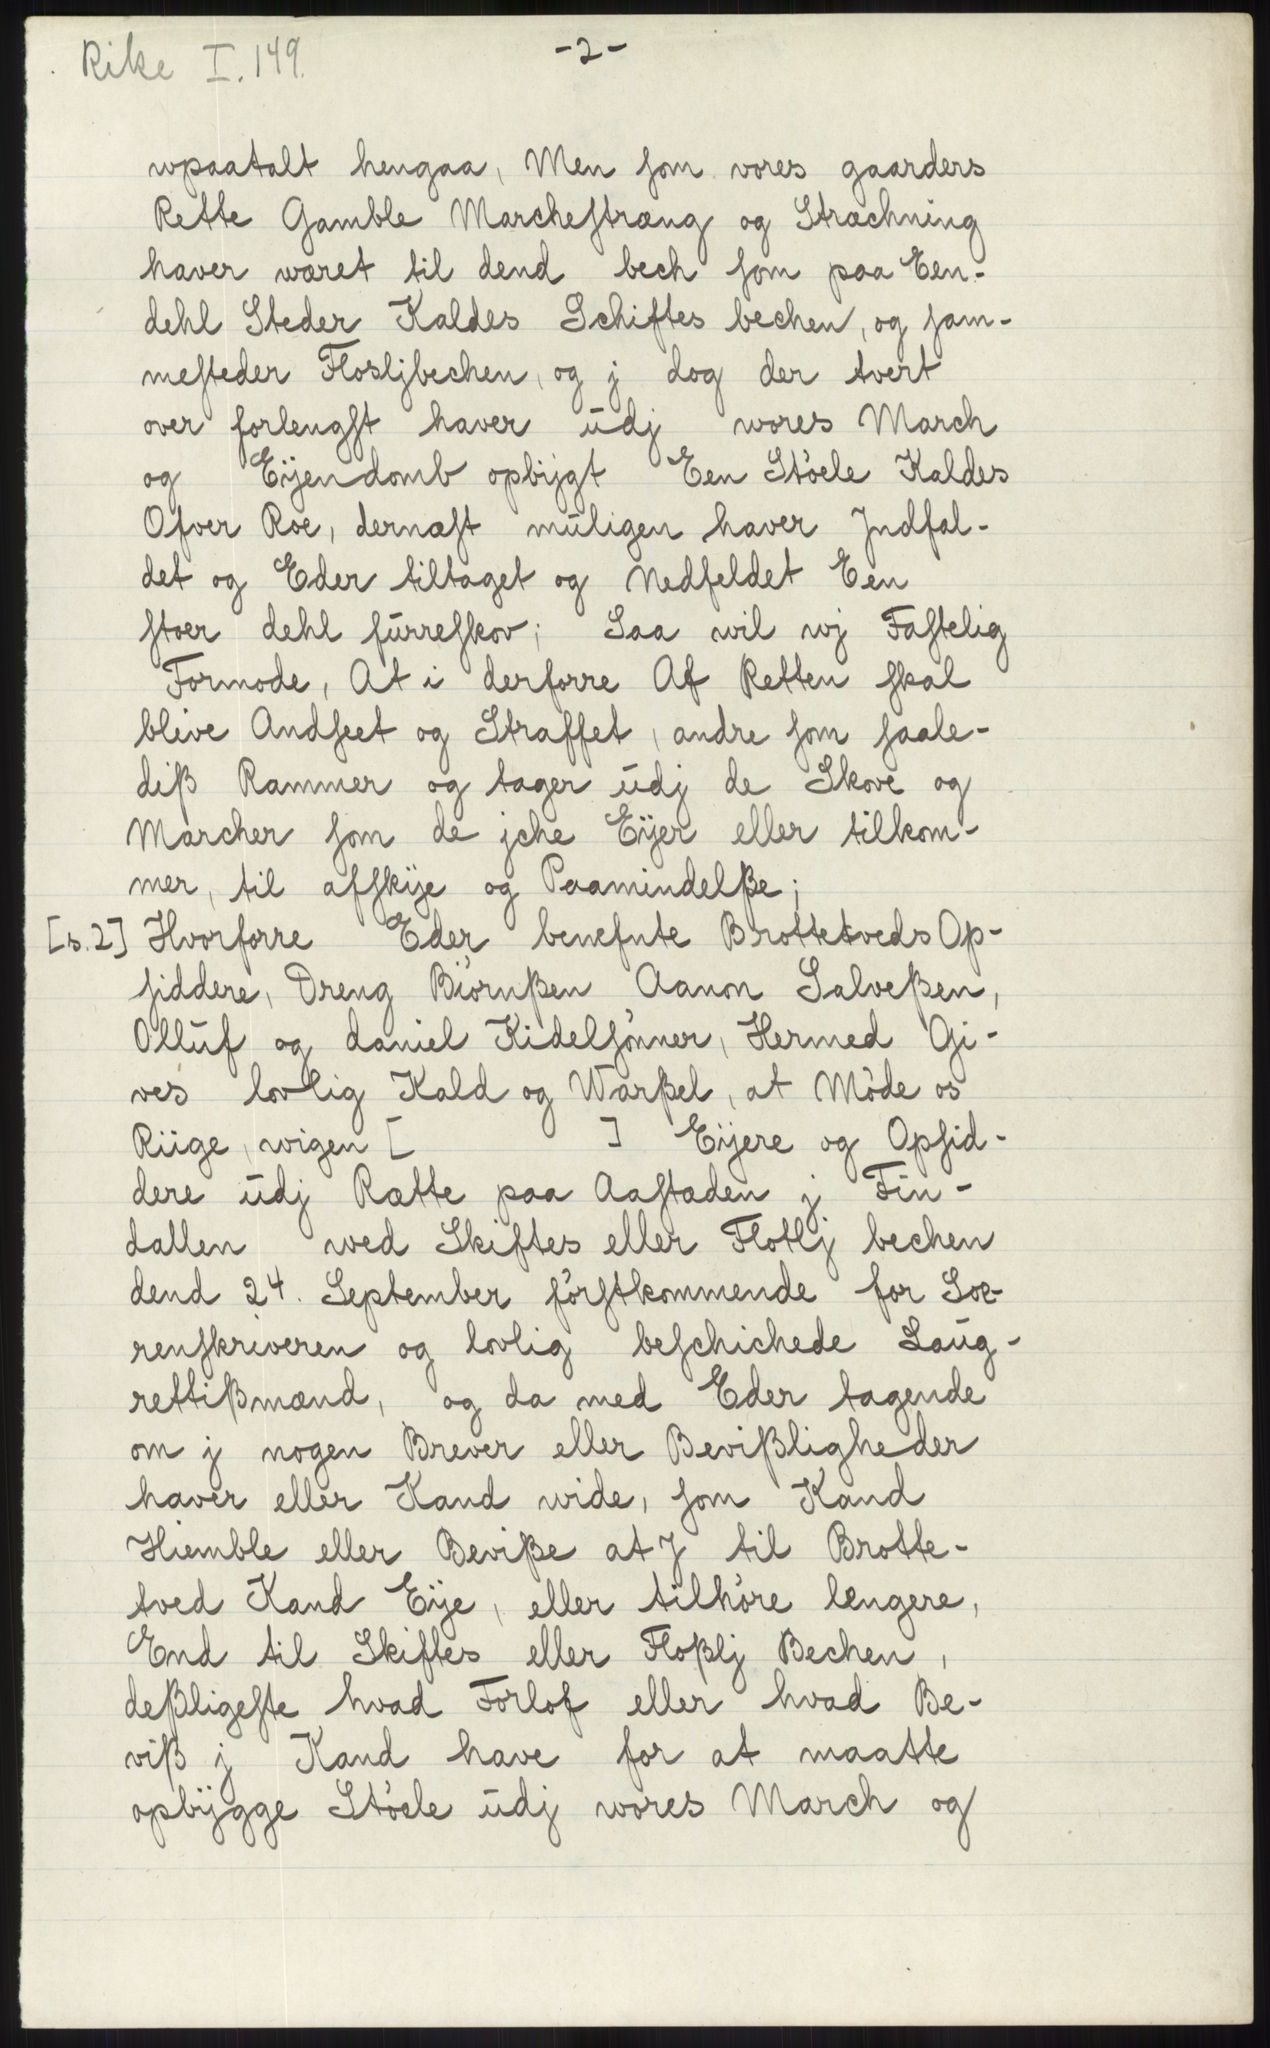 Rike I. 149.
-2-
wpaatalt hengaa, Men som vores gaarders
Rette Gamble Marchestræng og Stræchning
haver wæret til dend bech som paa Een-
dehl Steder Kaldes Schiftes bechen, og som-
mesteder Flosljbechen, og j dog der tvert
over forlengst haver udj wores March
og Eÿendomb opbÿgt Een Stöele Kaldes
Ofver Roe, dernæst muligen haver Jndfal-
det og Eder tiltaget og Nedfeldet Een
stoer dehl furreskov; Saa wil wj Fastelig
Formode, At i derforre Af Retten skal
blive Andseet og Straffet, andre som saale-
diß Rammer og tager udj de Skove og
Marcher som de jche Eÿer eller tilkom-
mer, til afskÿe og Paamindelße;
[s.2] Hvorforre Eder benefnte Brottetveds Op-
siddere, Dreng Biörnßen Aanon Salveßen,
Olluf og daniel Kidelsönner, Hermed Gi-
ves lovlig Kald og Warßel, at Möde os
Riige, wigen [ ] Eÿere og Opsid-
dere udj Rætte paa Aastæden j Fin-
dallen wed Skiftes eller Flotlj bechen
dend 24. September förstkommende for Soe-
renskriveren og lovlig beschichede Laug-
rettißmænd, og da med Eder tagende
om j nogen Brever eller Bevißligheder
haver eller Kand wide, som Kand
Hiemble eller Beviße at J til Brotte-
tved Kand Eÿe, eller tilhöre længere,
End til Skiftes eller Floßlj Bechen,
deßligeste hvad Forlof eller hvad Be-
viß j Kand have for at maatte
opbÿgge Stöele udj wores March og